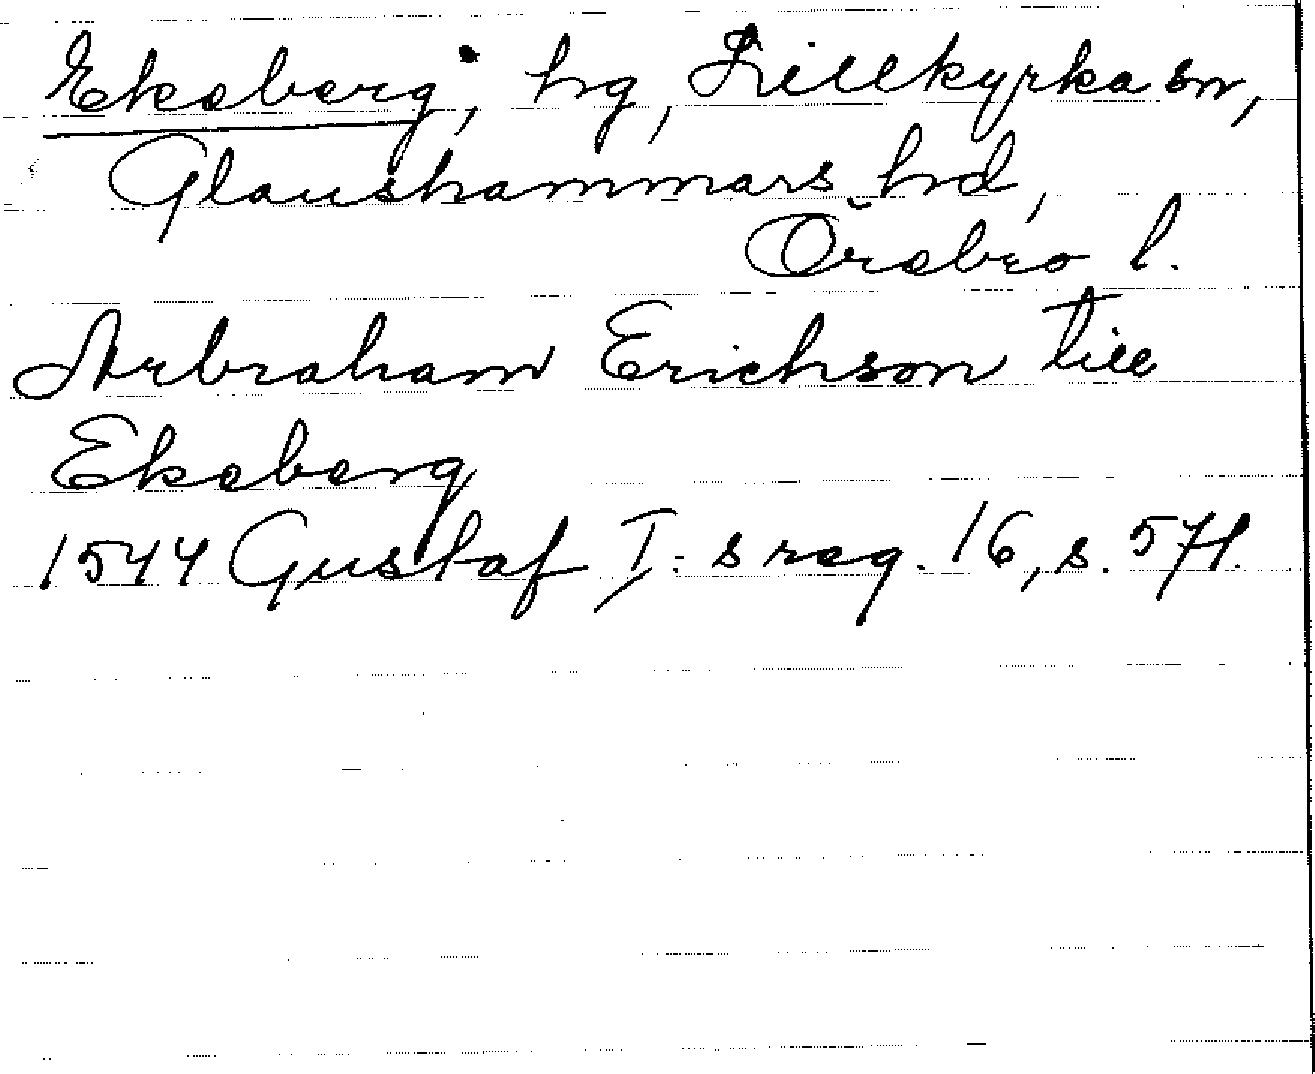 Ekeberg, hg, Lillkyrka sn,
Glanshammars hd,
Örebro l.
Arbraham Erichson till
Ekeberg
1544 Gustaf I:s reg. 16, s. 571.